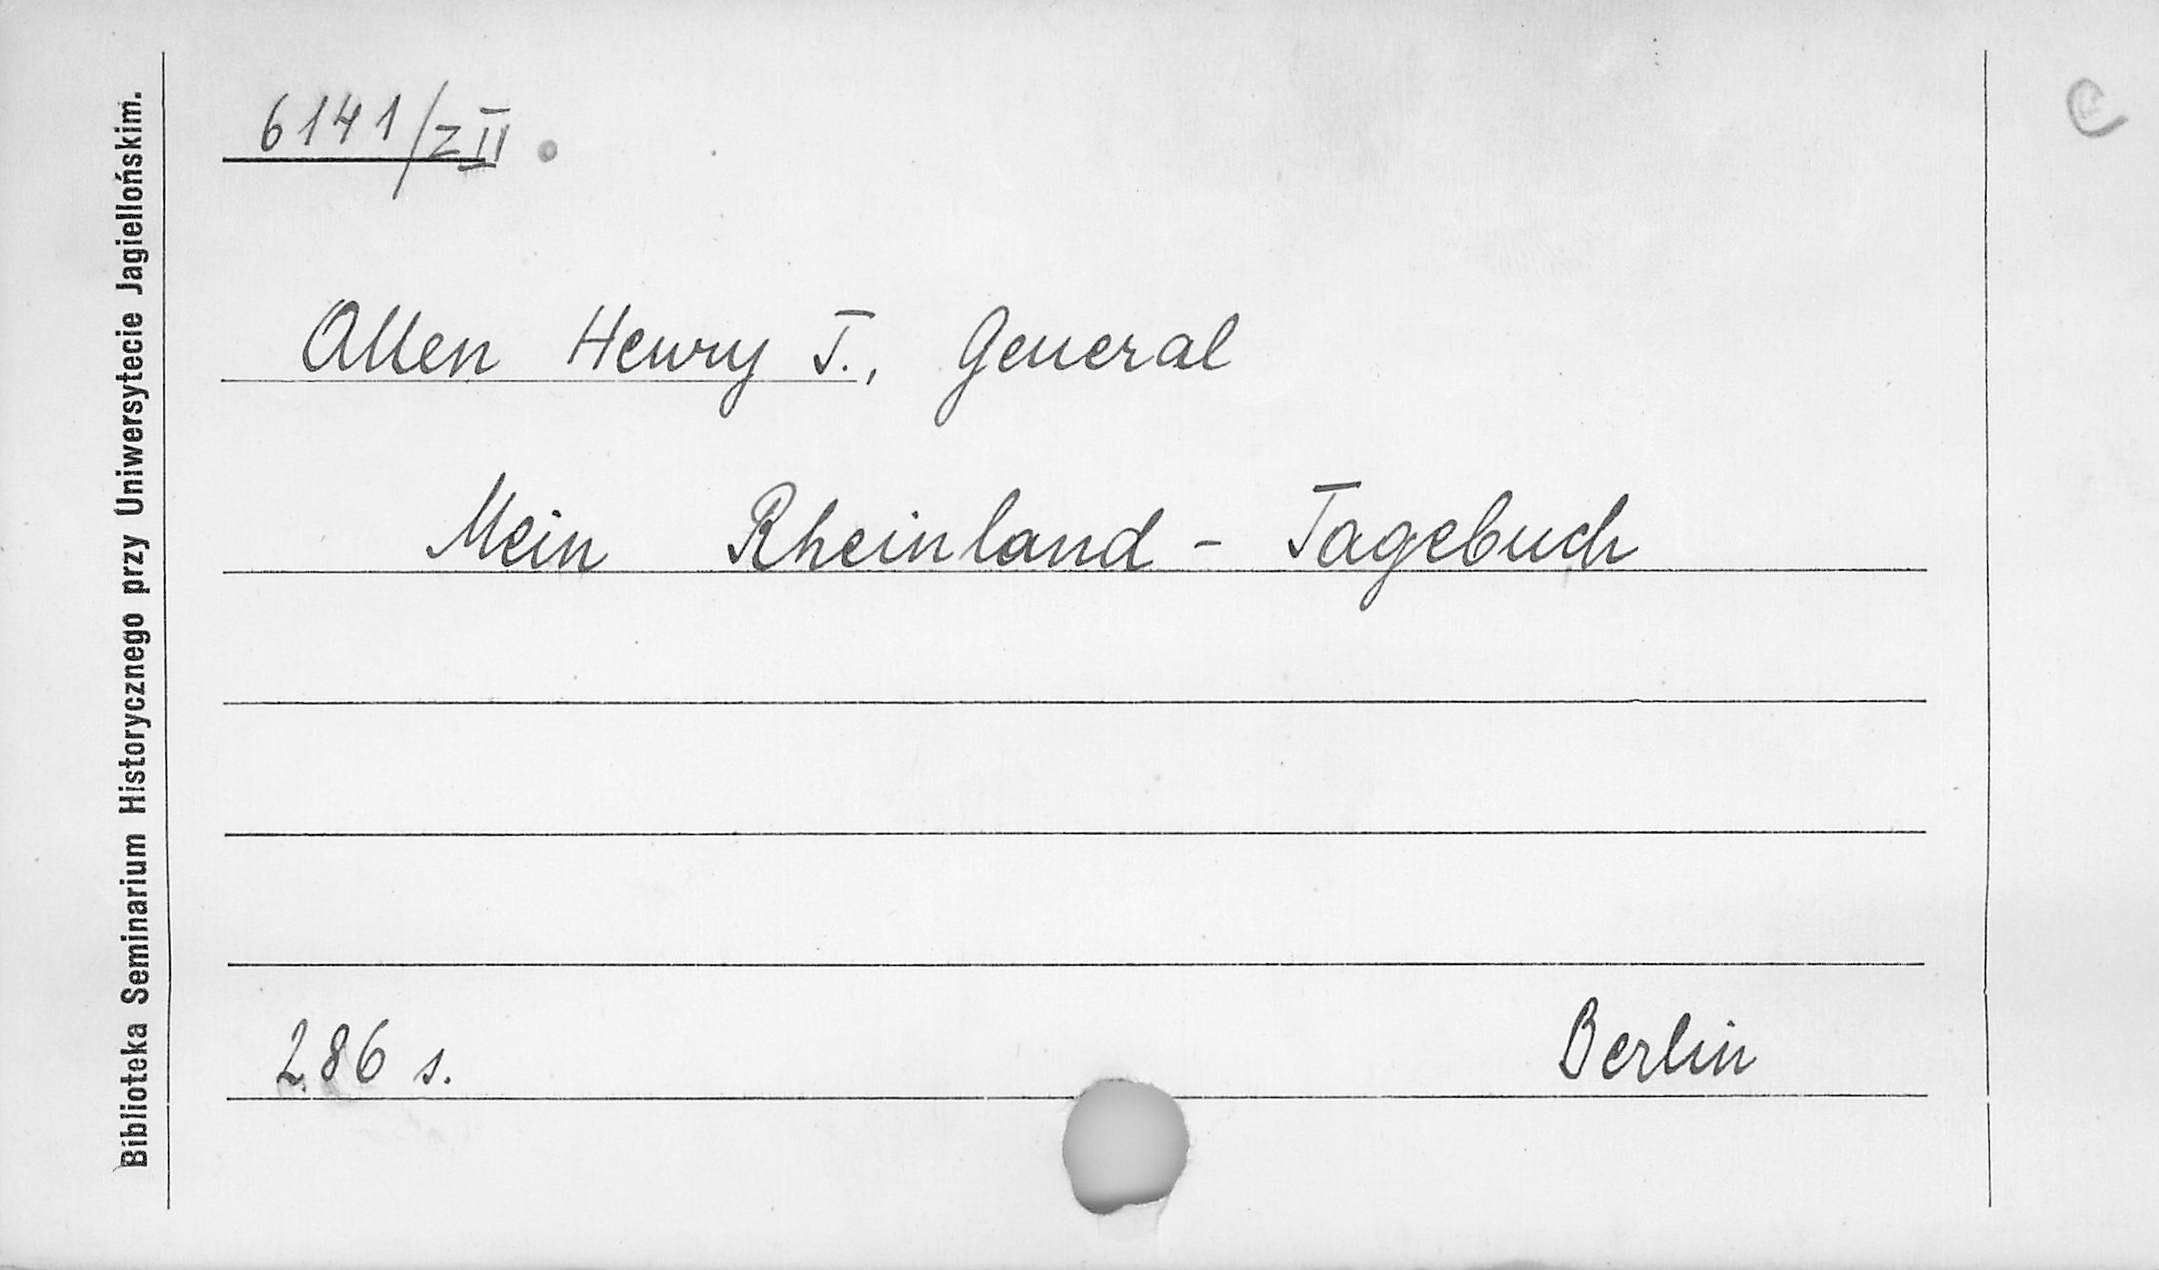 6141/z II
Allen Henry T., General
Mein Rheinland - Tagebuch
286 s.
Berlin
Biblioteka Seminarium Historycznego przy Uniwersytecie Jagiellońskim.